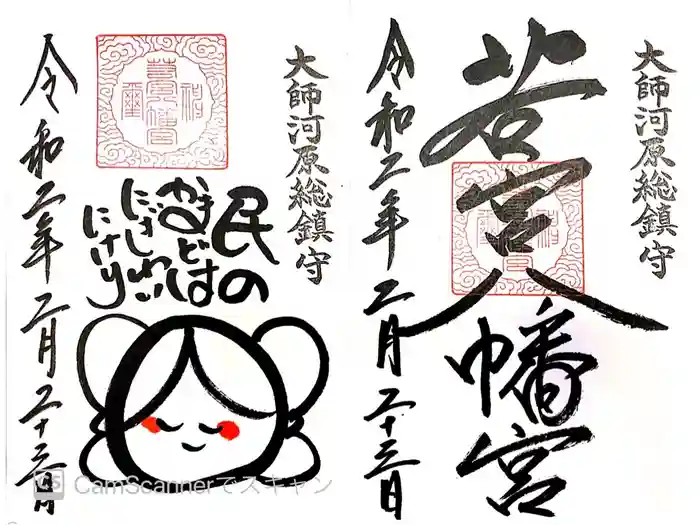 大師河原総鎮守
若宮八幡宮
令和二年二月二十三日
大師河原総鎮守
民の
かまどは
にぎわい
にけり
令和二年二月二十三日
CS CamScannerでスキャン